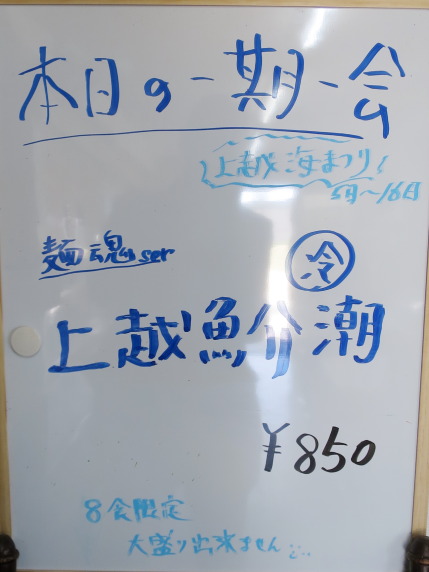 本日の一期一会
上越海まつり
5日〜16日
麺魂user
冷
上越魪潮
¥850
8食限定
大盛り出来ません